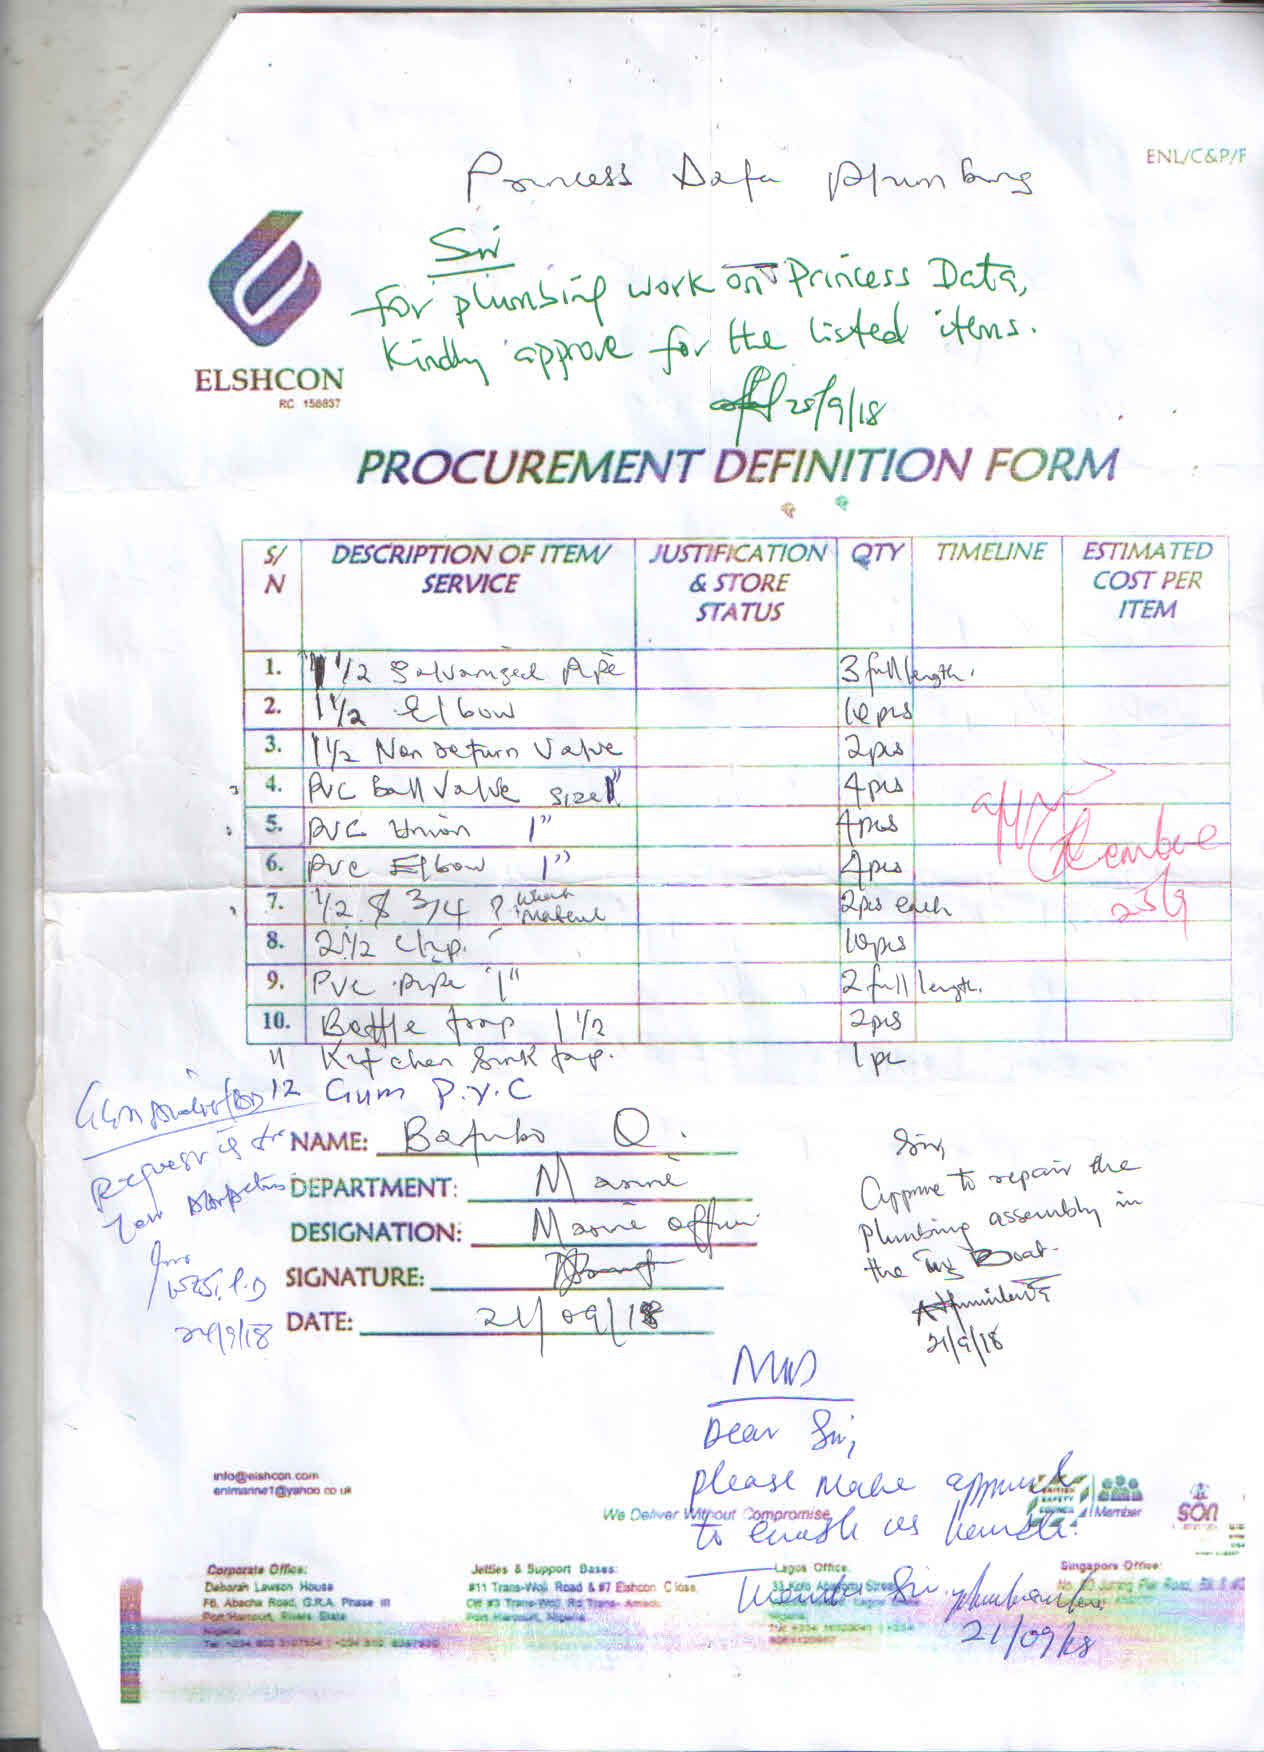 ENL/C&P/F
Princess Data plumbing
Sir
For plumbing work on Princess Data,
Kindly approve for the listed items.
25/9/18
ELSHCON
RC 156837
PROCUREMENT DEFINITION FORM
S/N DESCRIPTION OF ITEM/ SERVICE JUSTIFICATION & STORE STATUS QTY TIMELINE ESTIMATED COST PER ITEM
1. 1 1/2 galvanized pipe 3 full length.
2. 1 1/2 Elbow 10 pcs
3. 1 1/2 Non return Valve 2pcs
4. PVC Ball Valve size 1" 4pcs
5. PVC Union 1" 4pcs
6. PVC Elbow 1" 4pcs
7. 1/2 & 3/4 ? which material 2pcs each
8. 2 1/2 clip. 10pcs
9. PVC pipe "1" 2 full length.
10. Bottle trap 1 1/2 2pcs
11 Kitchen sink tap. 1 pc
12 Gum P.V.C
Request is for
24/9/18
NAME: O.
DEPARTMENT: Marine
DESIGNATION: Marine
SIGNATURE:
DATE: 21/09/18
Sir,
Approve to repair the
plumbing assembly in
the Tug Boat.
21/9/18
MD
Dear Sir,
please make
to enable us
Sir.
21/09/18
info@elshcon.com
enlmarine1@yahoo.co.uk
We Deliver Without Compromise
BRITISH SAFETY COUNCIL Member
SON
Corporate Office:
Deborah Lawson House
F6, Abacha Road, G.R.A. Phase III
Port Harcourt, Rivers State
Nigeria
Jetties & Support Bases:
#11 Trans-Woji Road & #7 Elshcon Close,
Off #3 Trans-Woji Rd Trans-Amadi,
Port Harcourt, Nigeria
Lagos Office:
Singapore Office: